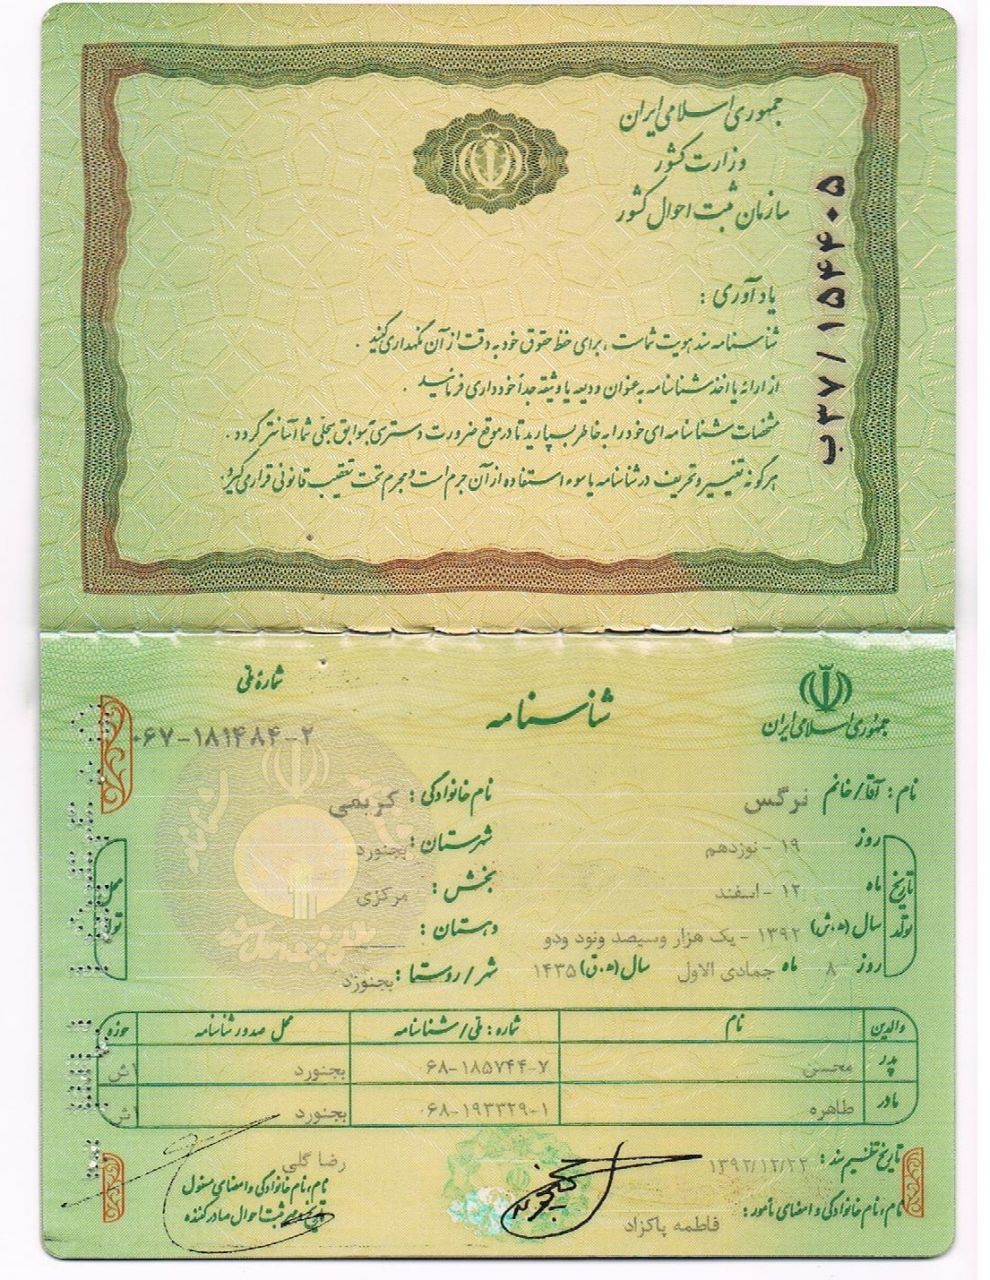 جمهوری اسلامی ایران
وزارت کشور
سازمان ثبت احوال کشور
ب۳۷/۱۵۴۴۰۵
یادآوری :
شناسنامه سند هویت شماست ، برای حفظ حقوق خود به دقت از آن نگهداری کنید .
از ارائه یا اخذ شناسنامه به عنوان ودیعه یا وثیقه جداً خودداری فرمائید .
مشخصات شناسنامه ای خود را به خاطر بسپارید تا در موقع ضرورت دسترسی به سوابق سجلی شما آسانتر گردد .
هرگونه تغییر و تحریف در شناسنامه یا سوء استفاده از آن جرم است و مجرم تحت تعقیب قانونی قرار می گیرد .
جمهوری اسلامی ایران
شناسنامه
شماره ملی
۰۶۷-۱۸۱۴۸۴-۲
نام : آقا/خانم نرگس نام خانوادگی : کریمی
تاریخ تولد
روز ۱۹ - نوزدهم
ماه ۱۲ - اسفند
سال (ه.ش) ۱۳۹۲ - یک هزار وسیصد ونود ودو
روز ۸ ماه جمادی الاول سال (ه.ق) ۱۴۳۵
محل تولد
شهرستان : بجنورد
بخش : مرکزی
دهستان :
شهر/روستا : بجنورد
والدین نام شماره : ملی/شناسنامه محل صدور شناسنامه حوزه
پدر محسن ۰۶۸-۱۸۵۷۴۴-۷ بجنورد ۱ش
مادر طاهره ۰۶۸-۱۹۳۳۲۹-۱ بجنورد ۱ش
تاریخ تنظیم سند : ۱۳۹۲/۱۲/۲۲
نام، نام خانوادگی و امضای مامور : فاطمه پاکزاد
رضا گلی
نام، نام خانوادگی و امضای مسئول
ثبت احوال صادرکننده